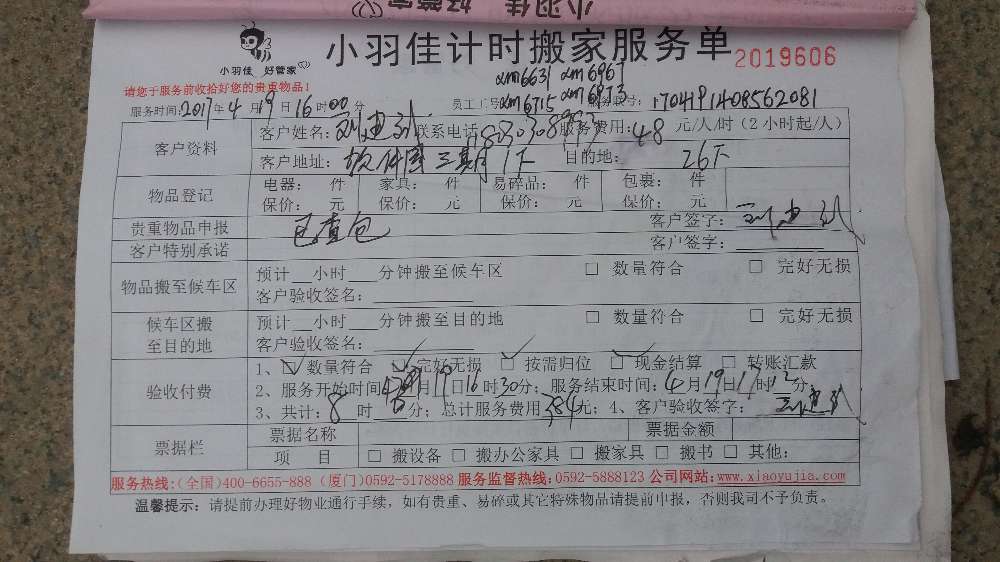 小羽佳 好管家
小羽佳 好管家
小羽佳计时搬家服务单
2019606
请您于服务前收拾好您的贵重物品!
xm6631 xm6967
xm6715 xm6973
服务时间:2017年4月19日16时00分 员工工号 1704191408562081
客户资料
客户姓名: 联系电话 服务费用:48 元/人/时(2小时起/人)
客户地址:软件园三期 1下 目的地: 26下
物品登记
电器: 件 家具: 件 易碎品: 件 包裹: 件
保价: 元 保价: 元 保价: 元 保价: 元
贵重物品申报 已查包 客户签字:
客户特别承诺 客户签字:
物品搬至候车区
预计__小时___分钟搬至候车区 □ 数量符合 □ 完好无损
客户验收签名:
候车区搬至目的地
预计__小时___分钟搬至目的地 □ 数量符合 □ 完好无损
客户验收签名:
验收付费
1、☑数量符合 ☑完好无损 ☑按需归位 ☑现金结算 □ 转账汇款
2、服务开始时间 4月19日16时30分;服务结束时间:4月19日17时12分
3、共计:8时 分;总计服务费用384元;4、客户验收签字:
票据栏
票据名称 票据金额
项 目 □ 搬设备 □ 搬办公家具 □ 搬家具 □ 搬书 □ 其他:
服务热线:(全国)400-6655-888 (厦门)0592-5178888 服务监督热线:0592-5888123 公司网站:www.xiaoyujia.com
温馨提示:请提前办理好物业通行手续,如有贵重、易碎或其它特殊物品请提前申报,否则我司不予负责。